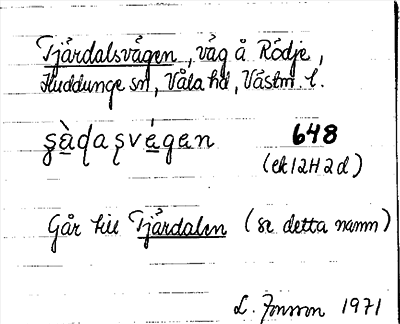 Tjärdalsvägen, väg å Rödje,
Huddunge sn, Våla hd, Västm. l.
648
(ek 12H2d)
Går till Tjärdalen (se detta namn)
L. Jonsson 1971